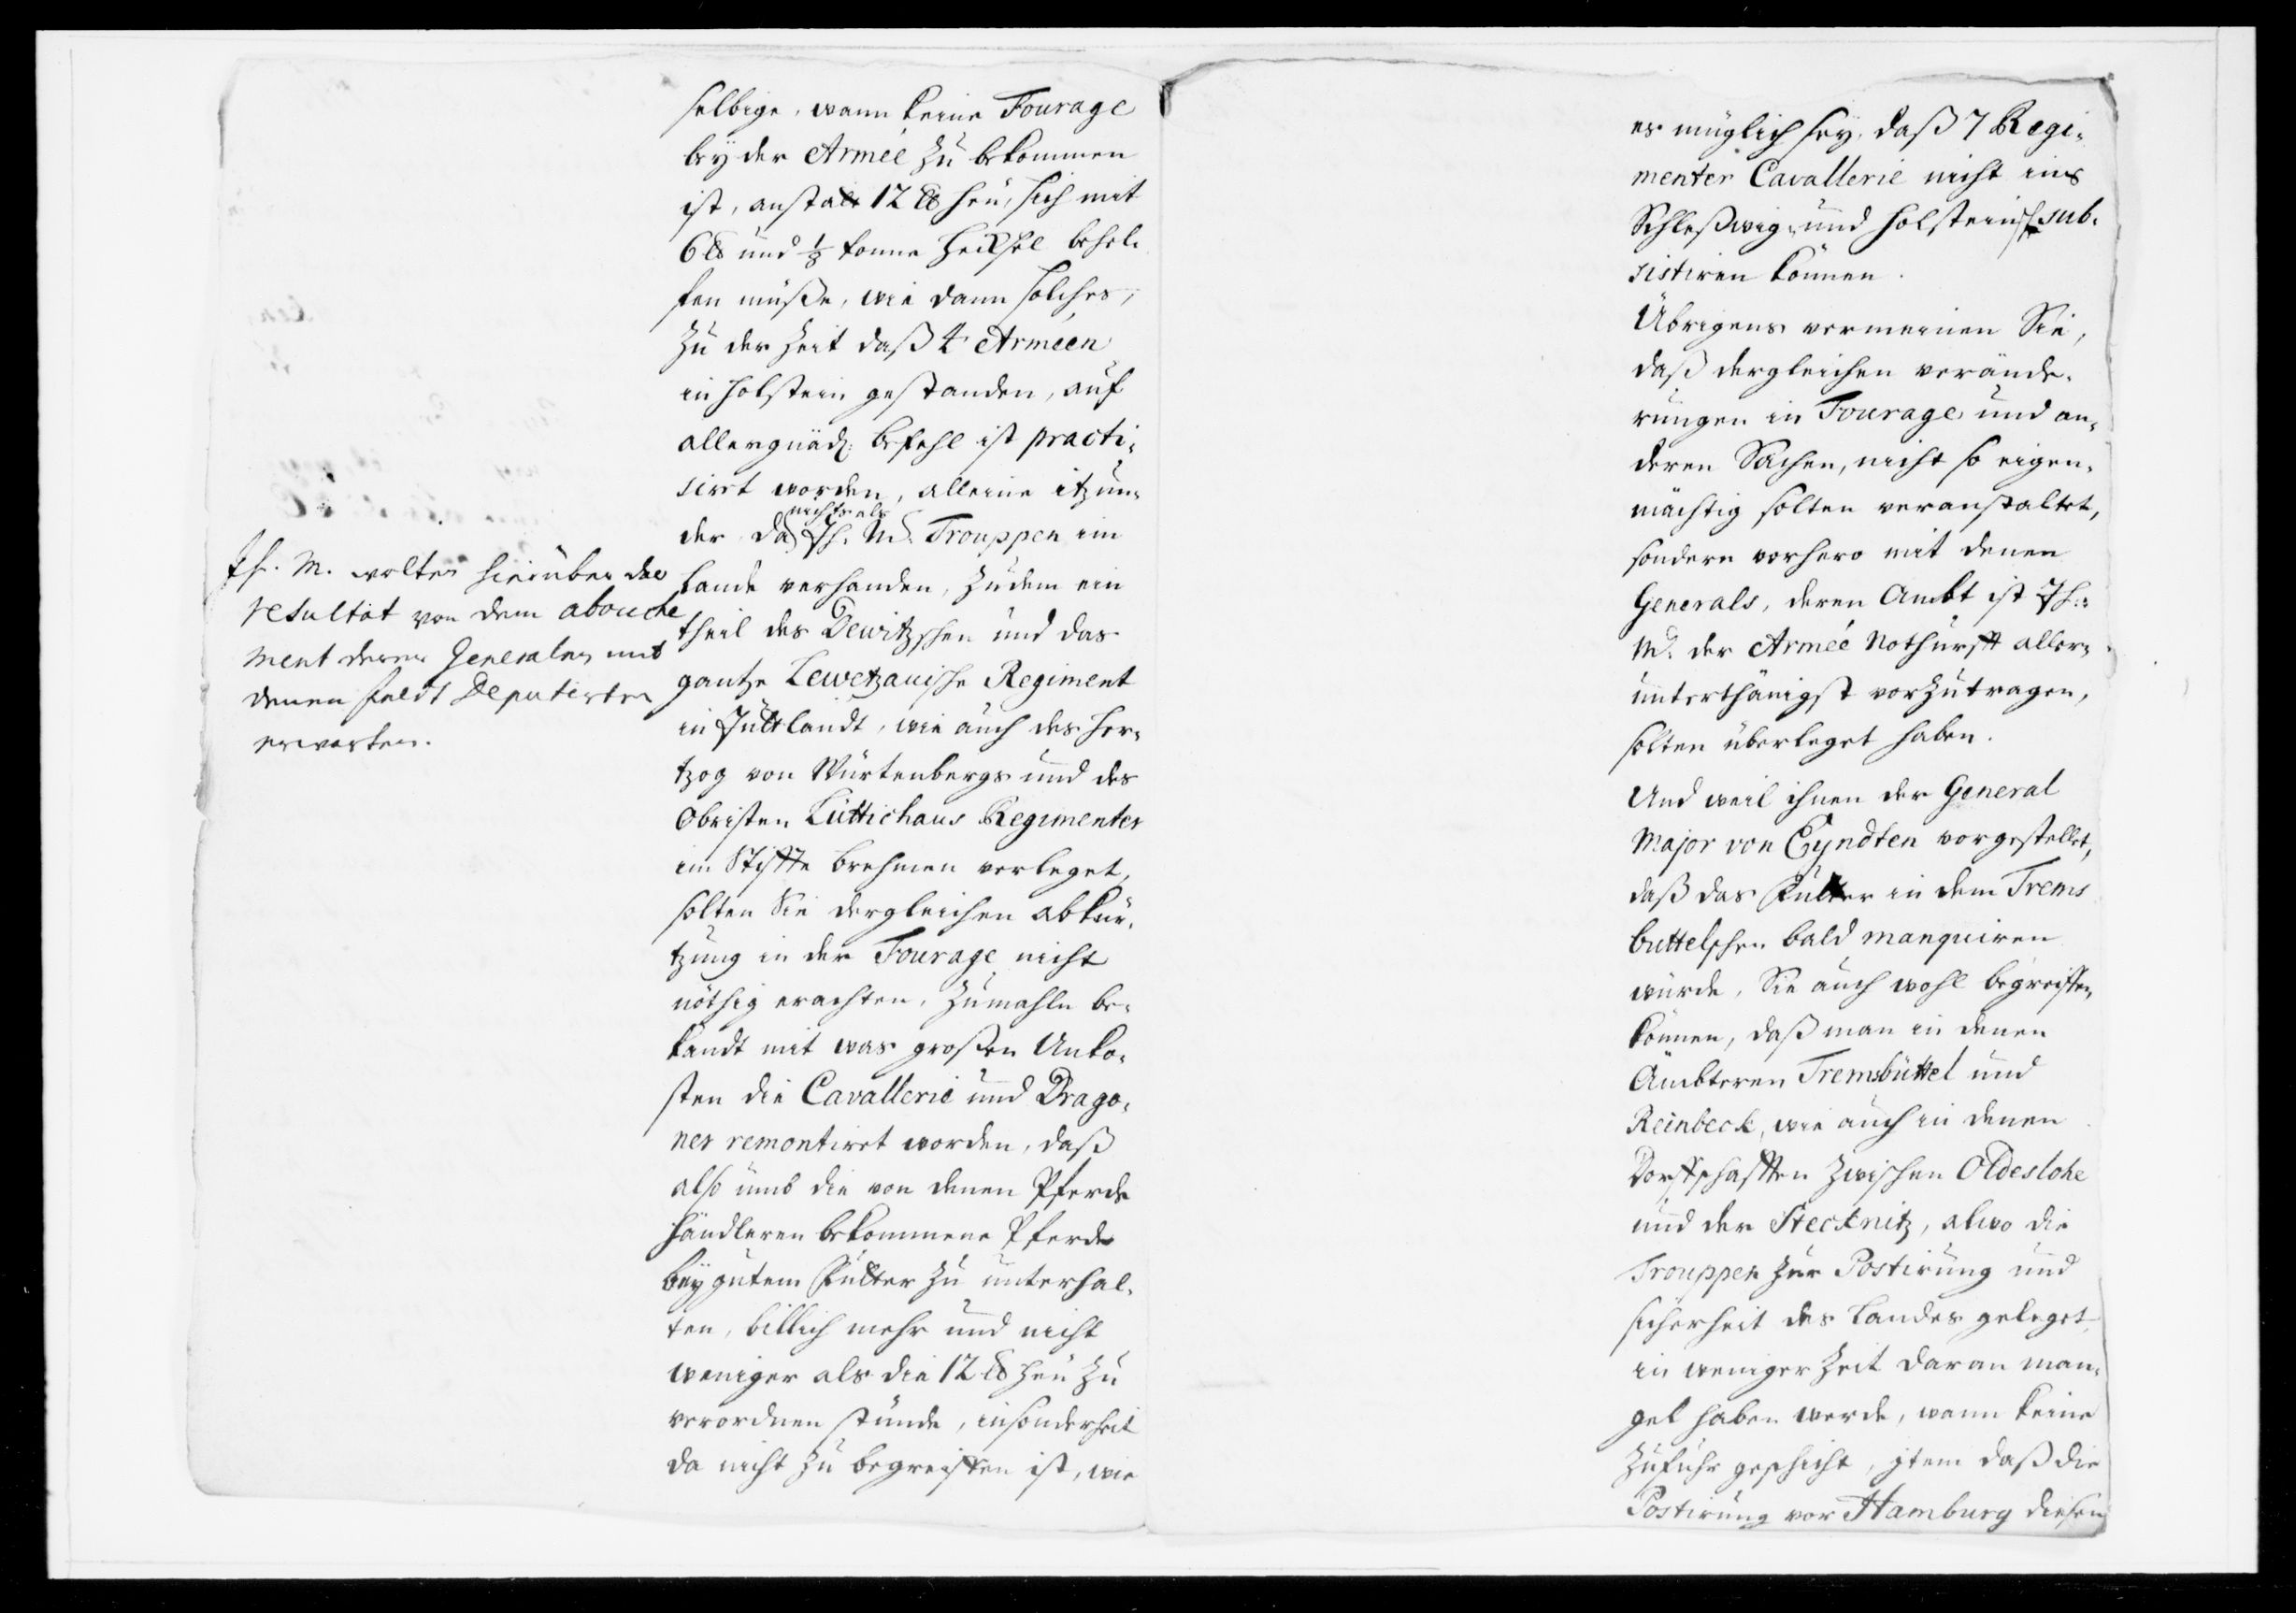 selbige, wann keine Fourage
bey der Armée zu bekommen
ist, anstalt 12 ℔ heu, sich mit
6 ℔ und ⅛ tonne Heckßel behel-
fen müße, wie dann solches,
zu der Zeit daß 4 Arméen
in Holstein gestanden, auf
allergnäd: befehl ist practi-
sirt worden, alleine itzun-
der da nichts als Jh. M. Trouppen im
Lande verhanden, zudem ein
theil des Dewitzschen und das
gantze Lewetzauische Regiment
in Jüttlandt, wie auch des Her-
tzog von Würtenbergs und des
Obristen Lüttichaus Regimenter
im Stiffte Brehmen verleget,
solten Sie dergleichen abkür-
tzung in der Fourage nicht
nöthig erachten, zumahln be-
kandt mit was großen Unko-
sten die Cavallerie und Drago-
ner remontiret worden, daß
also umb die von denen Pferde
händleren bekommene Pferde
bey gutem Futter zu unterhal-
ten, billich mehr und nicht
weniger als die 12 ℔ heu zu
verordnen stünde, insonderheit
da nicht zu begreiffen ist, wie
Jh. M. wolten hierüber das
resultat von dem abouche
ment derer Generalen mit
denen feldt Deputirten
erwarten.
es müglich sey, daß 7 Regi-
menter Cavallerie nicht ins
Schleßwig- und Holsteinsch. sub-
sistiren können.
Übrigens vermeinen Sie,
daß dergleichen verände-
rungen in Fourage und an-
deren Sachen, nicht so eigen-
mächtig solten veranstaltet,
sondern vorhero mit denen
Generals, deren Ambt ist Jh:
M. der Armée Nothurfft aller-
unterthänigst vorzutragen,
solten überleget haben.
Und weil ihnen der General
Major von Eyndten vorgestellet,
daß das Futter in dem Trems
buttelschen bald manquiren
würde, Sie auch wohl begreiffen
können, daß man in denen
Ämbteren Tremsbüttel und
Reinbeck, wie auch in denen
Dorffschafften zwischen Oldeslohe
und der Stecknitz, alwo die
Trouppen zur Postirung und
sicherheit des Landes geleget,
in weniger Zeit daran man-
gel haben werde, wann keine
Zufuhr geschicht, jtem daß die
Postirung vor Hamburg diesen